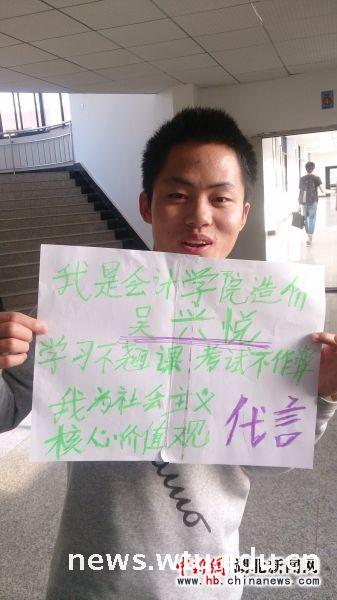 我是会计学院造价
吴兴悦
学习不翘课 考试不作弊
我为社会主义
核心价值观 代言
news.wtu.edu.cn
中新网 湖北新闻网
www.hb.chinanews.com